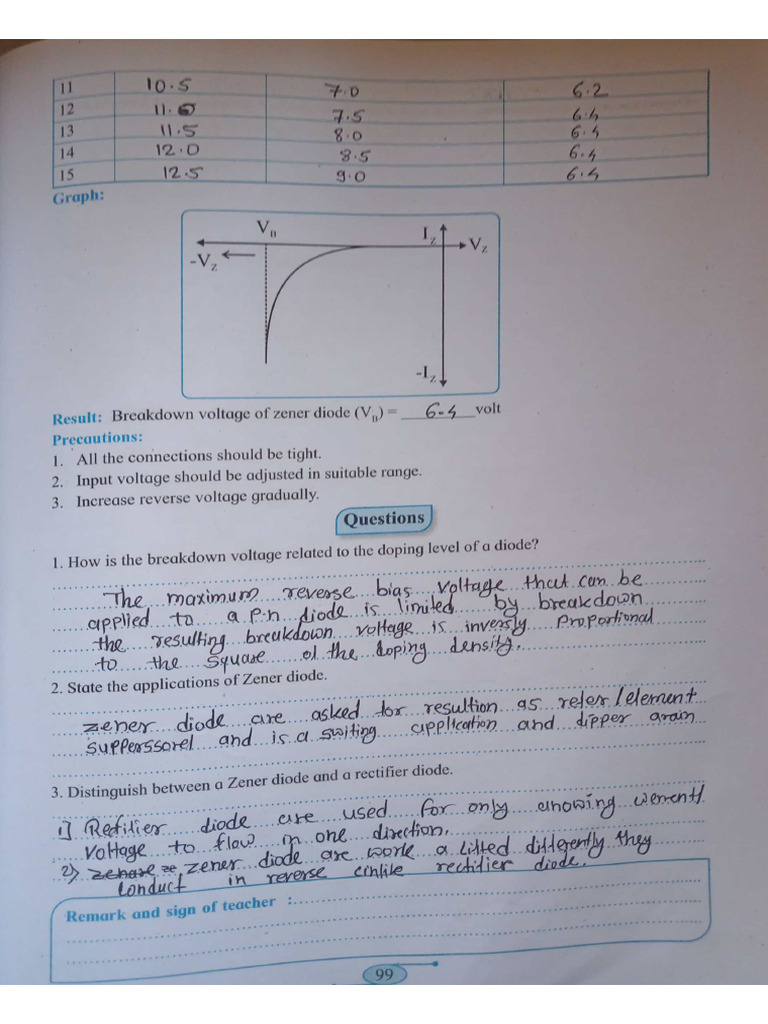 11 10.5 7.0 6.2
12 11.0 7.5 6.4
13 11.5 8.0 6.4
14 12.0 8.5 6.4
15 12.5 9.0 6.4
Graph:
V_B I_Z
V_Z
-V_Z
-I_Z
Result: Breakdown voltage of zener diode (V_B) = 6.4 volt
Precautions:
1. All the connections should be tight.
2. Input voltage should be adjusted in suitable range.
3. Increase reverse voltage gradually.
Questions
1. How is the breakdown voltage related to the doping level of a diode?
The maximum reverse bias voltage that can be
applied to a p.n diode is limited by breakdown
the resulting breakdown voltage is inversly Proportional
to the square of the doping density.
2. State the applications of Zener diode.
zener diode are asked for resultion as refer/element
supperssorel and is a switing application and dipper grain
3. Distinguish between a Zener diode and a rectifier diode.
1) Refilier diode are used for only
voltage to flow in one direction.
2) zener diode are work a differently they
conduct in reverse rectifier diode.
Remark and sign of teacher :
99